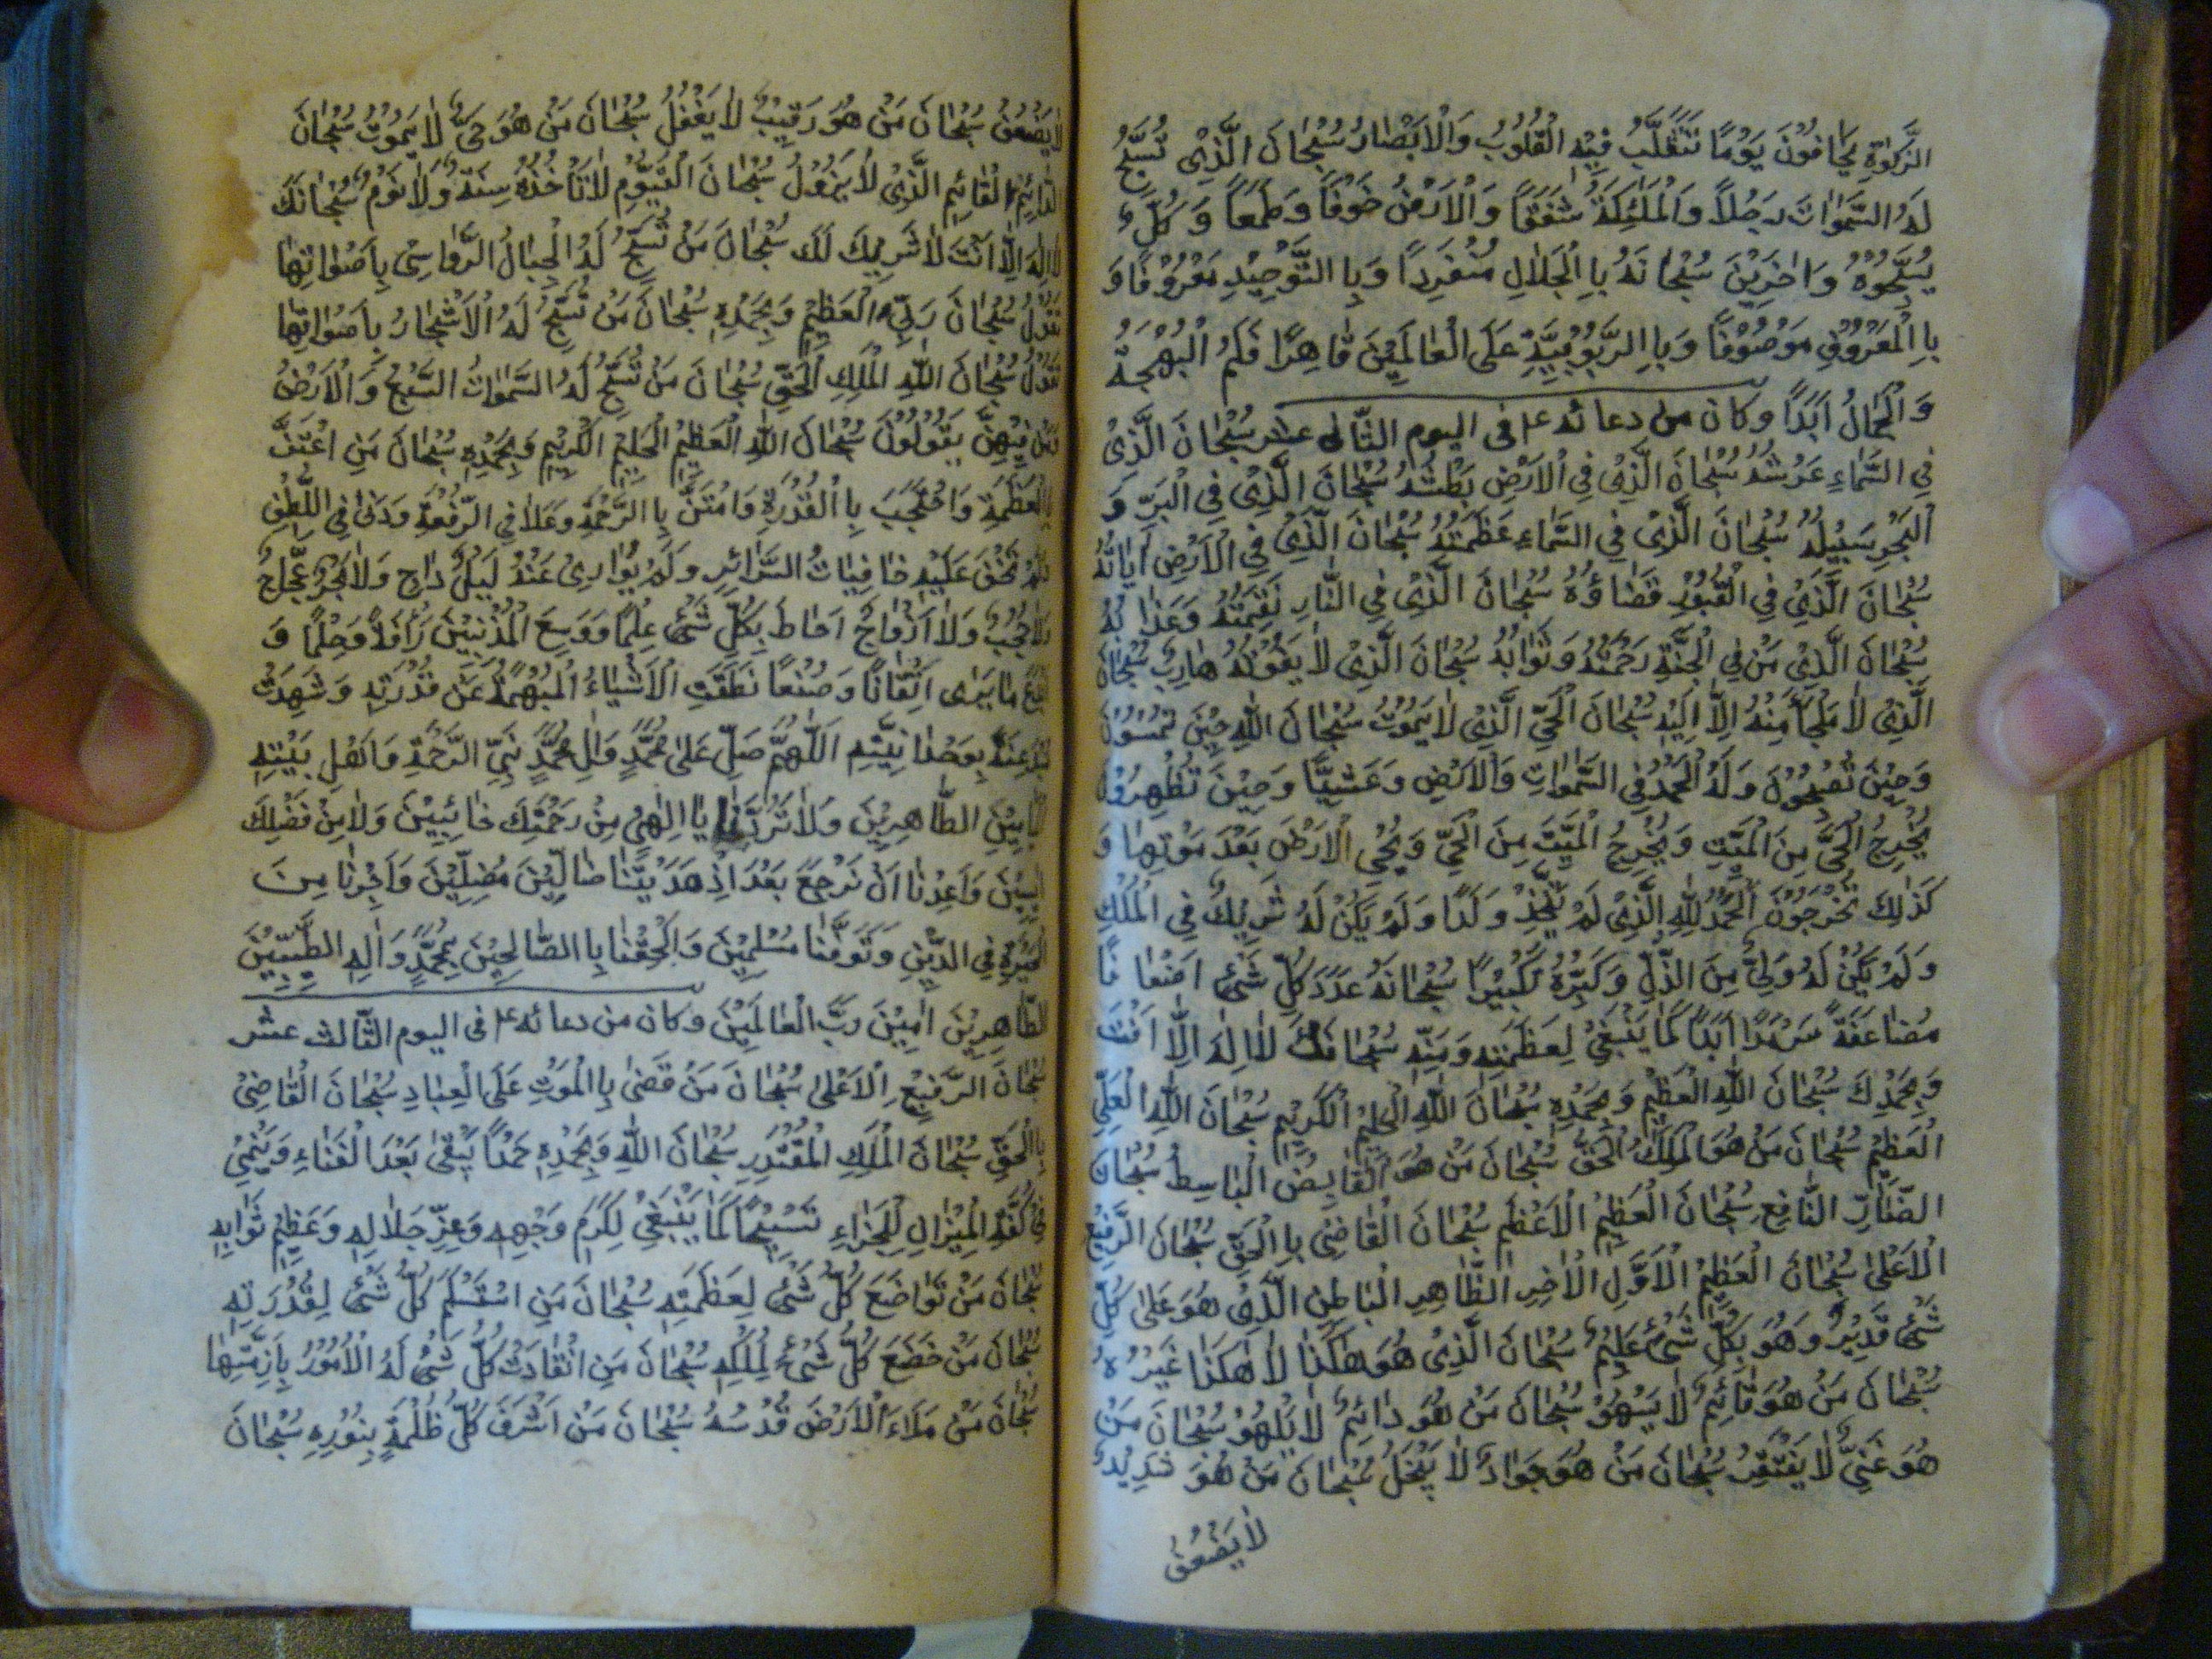 الزَّكٰوةِ يَخَافُوْنَ يَوْمًا تَتَقَلَّبُ فِيْهِ الْقُلُوْبُ وَالْاَبْصَارُ سُبْحَانَ الَّذِىْ تُسَبِّحُ
لَهُ السَّمٰوَاتُ وَجَلاً وَالْمَلٰئِكَةُ شَفَقًا وَالْاَرْضُ خَوْفًا وَطَمَعًا وَكُلٌّ
يُسَبِّحُوْهُ وَاٰخَرِيْنَ سُبْحَانَهُ بِاالْجَلَالِ مُنْفَرِدًا وَبِاالتَّوْحِيْدِ مَعْرُوْفًا وَ
بِاالْمَعْرُوْفِ مَوْصُوْفًا وَبِاالرَّبُوْبِيَّةِ عَلَى الْعَالَمِيْنَ قَاهِرًا فَلَهُ الْبَهْجَةُ
وَالْجَمَالُ اَبَدًا وكان من دعائه ع فى اليوم الثانى عشر سُبْحَانَ الَّذِىْ
فِي السَّمَاءِ عَرْشُهُ سُبْحَانَ الَّذِىْ فِي الْاَرْضِ بَطْشُهُ سُبْحَانَ الَّذِىْ فِي الْبَرِّ وَ
الْبَحْرِ سَبِيْلُهُ سُبْحَانَ الَّذِىْ فِي السَّمَاءِ عَظَمَتُهُ سُبْحَانَ الَّذِىْ فِي الْاَرْضِ اٰيَاتُهُ
سُبْحَانَ الَّذِىْ فِي الْقُبُوْرِ قَضَاؤُهُ سُبْحَانَ الَّذِىْ فِي النَّارِ نَقِمَتُهُ وَعَذَابُهُ
سُبْحَانَ الَّذِىْ مَنْ فِي الْجَنَّةِ رَحْمَتُهُ وَثَوَابُهُ سُبْحَانَ الَّذِىْ لَا يَفُوْتُهُ هَارِبٌ سُبْحَانَ
الَّذِىْ لَا مَلْجَأَ مِنْهُ اِلَّا اِلَيْهِ سُبْحَانَ الْحَيِّ الَّذِىْ لَا يَمُوْتُ سُبْحَانَ اللّٰهِ حِيْنَ تُمْسُوْنَ
وَحِيْنَ تُصْبِحُوْنَ وَلَهُ الْحَمْدُ فِي السَّمٰوَاتِ وَالْاَرْضِ وَعَشِيًّا وَحِيْنَ تُظْهِرُوْنَ
يُخْرِجُ الْحَيَّ مِنَ الْمَيِّتِ وَيُخْرِجُ الْمَيِّتَ مِنَ الْحَيِّ وَيُحْيِي الْاَرْضَ بَعْدَ مَوْتِهَا وَ
كَذٰلِكَ تُخْرَجُوْنَ اَلْحَمْدُ لِلّٰهِ الَّذِىْ لَمْ يَتَّخِذْ وَلَدًا وَلَمْ يَكُنْ لَهُ شَرِيْكٌ فِي الْمُلْكِ
وَلَمْ يَكُنْ لَهُ وَلِيٌّ مِنَ الذُّلِّ وَكَبِّرْهُ تَكْبِيْرًا سُبْحَانَهُ عَدَدَ كُلِّ شَىْءٍ اَضْعَافًا
مُضَاعَفَةً سَرْمَدًا اَبَدًا كَمَا يَنْبَغِيْ لِعَظَمَتِهِ وَمَنِّهِ سُبْحَانَكَ لَا اِلٰهَ اِلَّا اَنْتَ
وَبِحَمْدِكَ سُبْحَانَ اللّٰهِ الْعَظِيْمِ وَبِحَمْدِهِ سُبْحَانَ اللّٰهِ الْحَلِيْمِ الْكَرِيْمِ سُبْحَانَ اللّٰهِ الْعَلِيِّ
الْعَظِيْمِ سُبْحَانَ مَنْ هُوَ الْمَلِكُ الْحَقُّ سُبْحَانَ مَنْ هُوَ الْقَابِضُ الْبَاسِطُ سُبْحَانَ
الضَّارِّ النَّافِعِ سُبْحَانَ الْعَظِيْمِ الْاَعْظَمِ سُبْحَانَ الْقَاضِىْ بِاالْحَقِّ سُبْحَانَ الرَّفِيْعِ
الْاَعْلٰى سُبْحَانَ الْعَظِيْمِ الْاَوَّلِ الْاٰخِرِ الظَّاهِرِ الْبَاطِنِ الَّذِىْ هُوَ عَلٰى كُلِّ
شَىْءٍ قَدِيْرٌ وَهُوَ بِكُلِّ شَىْءٍ عَلِيْمٌ سُبْحَانَ الَّذِىْ هُوَ هٰكَذَا لَا هٰكَذَا غَيْرُهُ
سُبْحَانَ مَنْ هُوَ قَائِمٌ لَا يَسْهُوْ سُبْحَانَ مَنْ هُوَ دَائِمٌ لَا يَلْهُوْ سُبْحَانَ مَنْ
هُوَ غَنِيٌّ لَا يَفْتَقِرُ سُبْحَانَ مَنْ هُوَ جَوَادٌ لَا يَبْخَلُ سُبْحَانَ مَنْ هُوَ شَدِيْدٌ
لَا يَضْعُفُ
لَا يَضْعُفُ سُبْحَانَ مَنْ هُوَ رَقِيْبٌ لَا يَغْفُلُ سُبْحَانَ مَنْ هُوَ حَيٌّ لَا يَمُوْتُ سُبْحَانَ
الْقَائِمِ الَّذِىْ لَا يَزُوْلُ سُبْحَانَ الْقَيُّوْمِ لَا تَأْخُذُهُ سِنَةٌ وَلَا نَوْمٌ سُبْحَانَكَ
لَا اِلٰهَ اِلَّا اَنْتَ لَا شَرِيْكَ لَكَ سُبْحَانَ مَنْ تُسَبِّحُ لَهُ الْجِبَالُ الرَّوَاسِىْ بِاَصْوَاتِهَا
تَقُوْلُ سُبْحَانَ رَبِّيَ الْعَظِيْمِ وَبِحَمْدِهِ سُبْحَانَ مَنْ تُسَبِّحُ لَهُ الْاَشْجَارُ بِاَصْوَاتِهَا
تَقُوْلُ سُبْحَانَ اللّٰهِ الْمَلِكِ الْحَقِّ سُبْحَانَ مَنْ تُسَبِّحُ لَهُ السَّمٰوَاتُ السَّبْعُ وَالْاَرْضُ
وَمَنْ فِيْهِنَّ يَقُوْلُوْنَ سُبْحَانَ اللّٰهِ الْعَظِيْمِ الْحَلِيْمِ الْكَرِيْمِ وَبِحَمْدِهِ سُبْحَانَ مَنِ اعْتَزَّ
بِالْعَظَمَةِ وَاحْتَجَبَ بِاالْقُدْرَةِ وَامْتَنَّ بِاالرَّحْمَةِ وَعَلَا فِي الرِّفْعَةِ وَدَنٰى فِي اللُّطْفِ
وَلَمْ تَخْفَ عَلَيْهِ خَافِيَاتُ السَّرَائِرِ وَلَمْ يُوَارِىْ عَنْهُ لَيْلٌ دَاجٍ وَلَا بَحْرٌ عَجَّاجٌ
وَلَا حُجُبٌ وَلَا اَزْوَاجٌ اَحَاطَ بِكُلِّ شَىْءٍ عِلْمًا وَوَسِعَ الْمُذْنِبِيْنَ رَأْفَةً وَحِلْمًا وَ
اَبْدَعَ مَا يَرٰى اِتْقَانًا وَصُنْعًا نَطَقَتِ الْاَشْيَاءُ الْمُبْهَمَةُ عَنْ قُدْرَتِهِ وَشَهِدَتْ
مُبْدِعَةً بِوَحْدَانِيَّتِهِ اَللّٰهُمَّ صَلِّ عَلٰى مُحَمَّدٍ وَاٰلِ مُحَمَّدٍ نَبِيِّ الرَّحْمَةِ وَاَهْلِ بَيْتِهِ
الطَّيِّبِيْنَ الطَّاهِرِيْنَ وَلَا تَرُدَّنَا يَا اِلٰهِىْ مِنْ رَحْمَتِكَ خَائِبِيْنَ وَلَا مِنْ فَضْلِكَ
اٰيِسِيْنَ وَاَعِذْنَا اَنْ نَرْجِعَ بَعْدَ اِذْ هَدَيْتَنَا ضَالِّيْنَ مُضِلِّيْنَ وَاَجِرْنَا مِنَ
الْحَيْرَةِ فِي الدِّيْنِ وَتَوَفَّنَا مُسْلِمِيْنَ وَاَلْحِقْنَا بِاالصَّالِحِيْنَ بِمُحَمَّدٍ وَاٰلِهِ الطَّيِّبِيْنَ
الطَّاهِرِيْنَ اٰمِيْنَ رَبَّ الْعَالَمِيْنَ وكان من دعائه ع فى اليوم الثالث عشر
سُبْحَانَ الرَّفِيْعِ الْاَعْلٰى سُبْحَانَ مَنْ قَضٰى بِاالْمَوْتِ عَلَى الْعِبَادِ سُبْحَانَ الْقَاضِىْ
بِالْحَقِّ سُبْحَانَ الْمَلِكِ الْمُقْتَدِرِ سُبْحَانَ اللّٰهِ وَبِحَمْدِهِ حَمْدًا يَبْقٰى بَعْدَ الْفَنَاءِ وَيَنْمِىْ
فِىْ كَفَّةِ الْمِيْزَانِ لِلْجَزَاءِ تَسْبِيْحًا كَمَا يَنْبَغِىْ لِكَرَمِ وَجْهِهِ وَعِزِّ جَلَالِهِ وَعَظِيْمِ ثَوَابِهِ
سُبْحَانَ مَنْ تَوَاضَعَ كُلُّ شَىْءٍ لِعَظَمَتِهِ سُبْحَانَ مَنِ اسْتَسْلَمَ كُلُّ شَىْءٍ لِقُدْرَتِهِ
سُبْحَانَ مَنْ خَضَعَ كُلُّ شَىْءٍ لِمُلْكِهِ سُبْحَانَ مَنِ انْقَادَتْ كُلُّ شَىْءٍ لَهُ الْاُمُوْرُ بِاَزِمَّتِهَا
سُبْحَانَ مَنْ مَلَاءَ الْاَرْضَ قُدْسُهُ سُبْحَانَ مَنْ اَشْرَقَ كُلُّ ظُلْمَةٍ بِنُوْرِهِ سُبْحَانَ